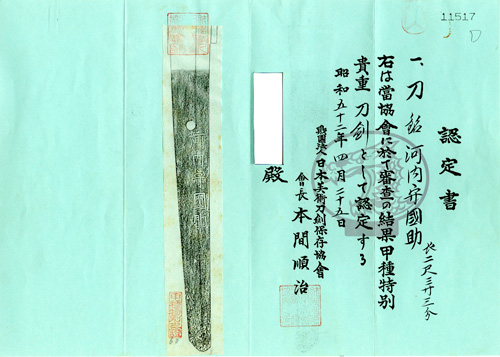 11517
認定書
一、刀 銘 河内守國助 長二尺三寸三分
右は當協會に於て審査の結果甲種特別
貴重刀剣として認定する
昭和五十二年四月二十五日
財團法人日本美術刀剣保存協會
會長 本間順治
殿